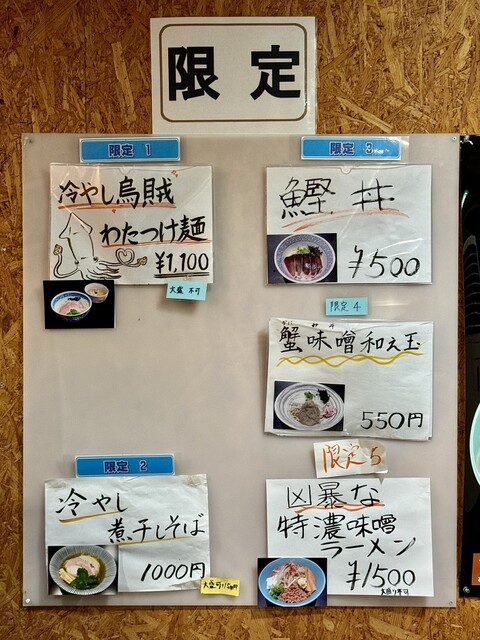 限定
限定 1
冷やし烏賊
わたつけ麺
¥1,100
大盛不可
限定 2
冷やし
煮干しそば
1000円
限定 3
鰹丼
¥500
限定 4
かに みそ
蟹味噌和え玉
550円
限定 5
凶暴な
特濃味噌
ラーメン
¥1500
大盛り不可